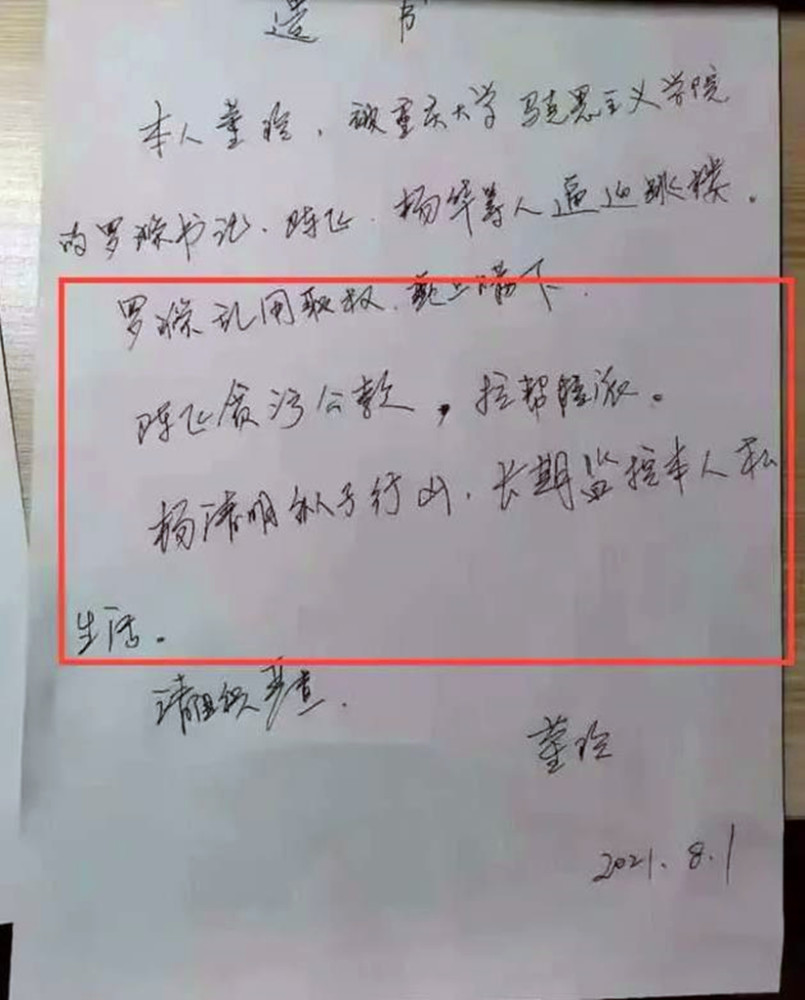 遗书
本人董玲，被重庆大学马克思主义学院
的罗滌书记、陈飞、杨华等人逼迫跳楼。
罗滌乱用职权、欺上瞒下．
陈飞贪污公款，拉帮结派。
杨清明纵子行凶．长期监控本人私
生活。
请组织严查．
董玲
2021.8.1